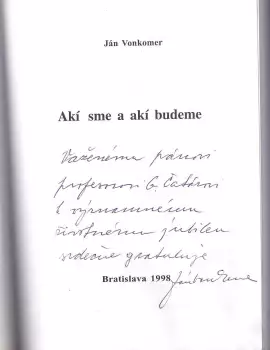 Ján Vonkomer
Akí sme a akí budeme
Váženému pánovi
profesorovi G. Čatárovi
k významnému
životnému jubileu
srdečne gratuluje
Bratislava 1998